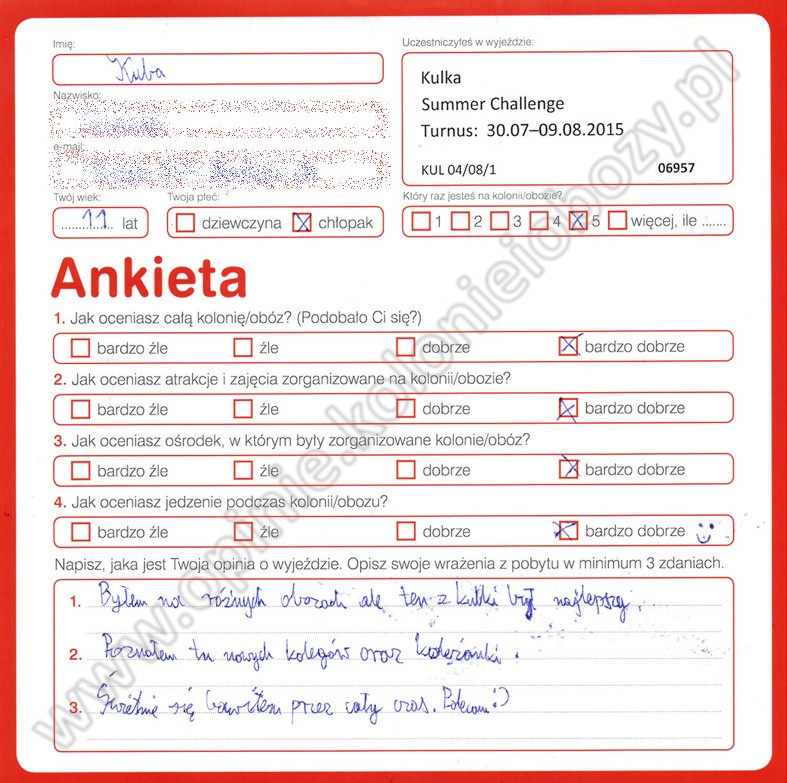 Imię:
Kuba
Nazwisko:
e-mail:
Twój wiek:
11 lat
Twoja płeć:
dziewczyna chłopak
Uczestniczyłeś w wyjeździe:
Kulka
Summer Challenge
Turnus: 30.07–09.08.2015
KUL 04/08/1 06957
Który raz jesteś na kolonii/obozie?
1 2 3 4 5 więcej, ile .......
Ankieta
1. Jak oceniasz całą kolonię/obóz? (Podobało Ci się?)
bardzo źle źle dobrze bardzo dobrze
2. Jak oceniasz atrakcje i zajęcia zorganizowane na kolonii/obozie?
bardzo źle źle dobrze bardzo dobrze
3. Jak oceniasz ośrodek, w którym były zorganizowane kolonie/obóz?
bardzo źle źle dobrze bardzo dobrze
4. Jak oceniasz jedzenie podczas kolonii/obozu?
bardzo źle źle dobrze bardzo dobrze
Napisz, jaka jest Twoja opinia o wyjeździe. Opisz swoje wrażenia z pobytu w minimum 3 zdaniach.
1. Byłem na różnych obozach ale ten z kulki był najlepszy.
2. Poznałem tu nowych kolegów oraz koleżanki.
3. Świetnie się bawiłem przez cały czas. Polecam :)
www.opinie.kolonieiobozy.pl